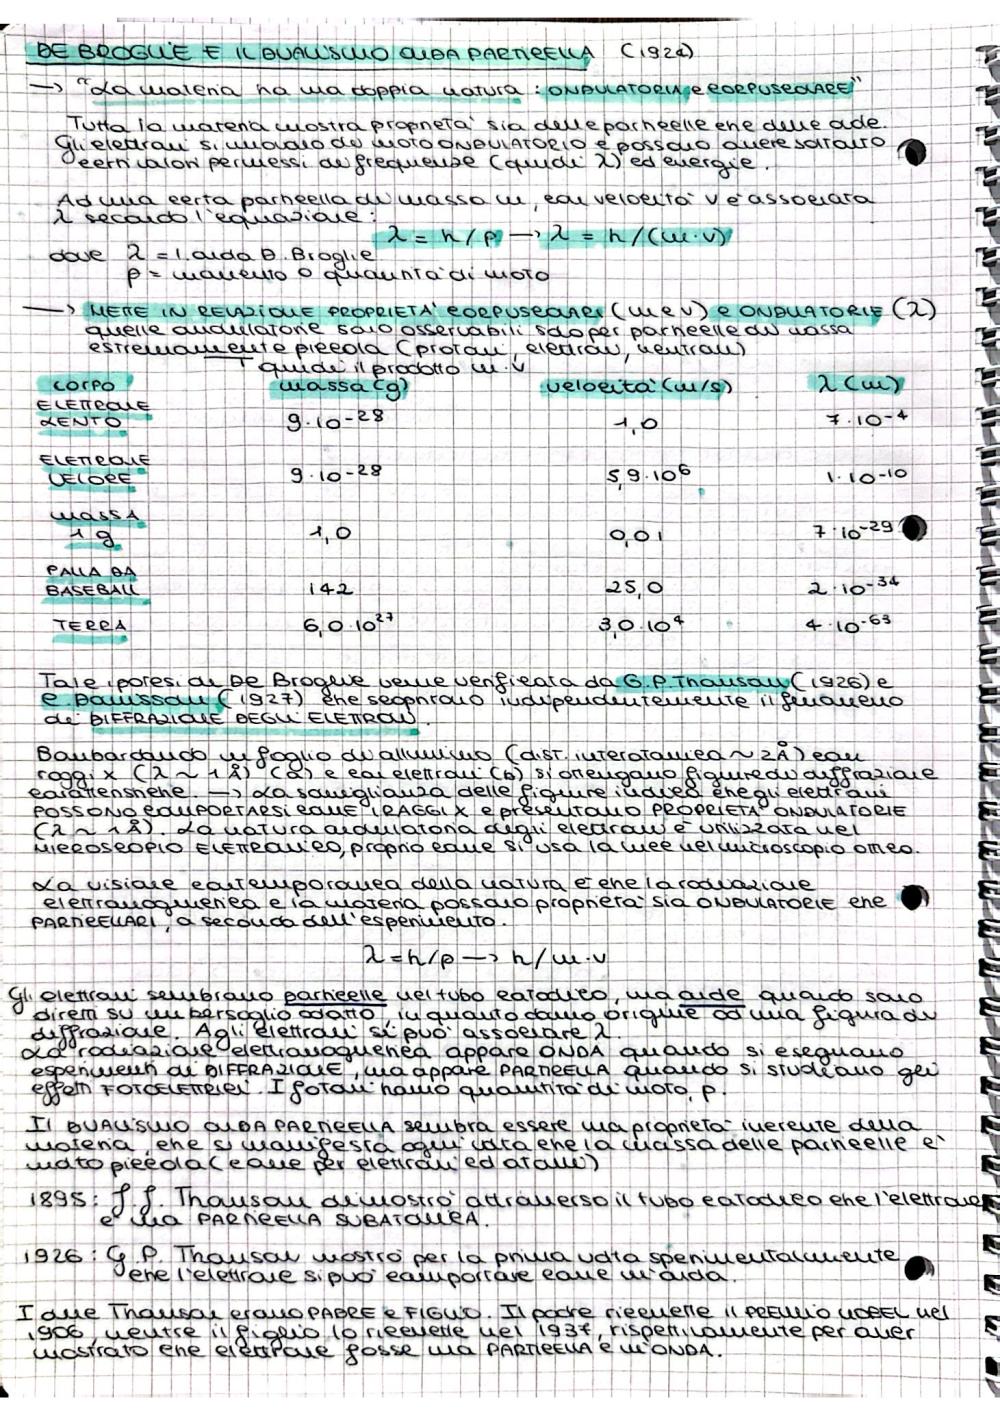 DE BROGLIE E IL DUALISMO ONDA PARTICELLA (1924)
→ "La materia ha una doppia natura: ONDULATORIA e CORPUSCOLARE"
Tutta la materia mostra proprietà sia delle particelle che delle onde.
Gli elettroni si muovono di moto ONDULATORIO e possono avere soltanto
certi valori permessi di frequenze (quindi λ) ed energie.
Ad una certa particella di massa m, con velocità v è associata
λ secondo l'equazione:
λ = h/p → λ = h/(m·v)
dove λ = l. onda D. Broglie
p = momento o quantità di moto
→ METTE IN RELAZIONE PROPRIETÀ CORPUSCOLARI (m e v) e ONDULATORIE (λ)
quelle ondulatorie sono osservabili solo per particelle di massa
estremamente piccola (protoni, elettroni, neutroni)
quindi il prodotto m·v
CORPO massa (g) velocità (m/s) λ (m)
ELETTRONE
LENTO 9·10⁻²⁸ 1,0 7·10⁻⁴
ELETTRONE
VELOCE 9·10⁻²⁸ 5,9·10⁶ 1·10⁻¹⁰
MASSA
1 g 1,0 0,01 7·10⁻²⁹
PALLA DA
BASEBALL 142 25,0 2·10⁻³⁴
TERRA 6,0·10²⁷ 3,0·10⁴ 4·10⁻⁶³
Tale ipotesi di De Broglie venne verificata da G.P. Thomson (1926) e
C. Davisson (1927) che scoprirono indipendentemente il fenomeno
di DIFFRAZIONE DEGLI ELETTRONI.
Bombardando un foglio di alluminio (dist. interatomica ~ 2Å) con
raggi x (λ ~ 1 Å) (a) e con elettroni (b) si ottengono figure di diffrazione
caratteristiche. → La somiglianza delle figure indica che gli elettroni
POSSONO COMPORTARSI COME I RAGGI X e presentano PROPRIETÀ ONDULATORIE
(λ ~ 1Å). La natura ondulatoria degli elettroni è utilizzata nel
MICROSCOPIO ELETTRONICO, proprio come si usa la luce nel microscopio ottico.
La visione contemporanea della natura è che la radiazione
elettromagnetica e la materia possono proprietà sia ONDULATORIE che
PARTICELLARI, a seconda dell'esperimento.
λ = h/p → h/m·v
Gli elettroni sembrano particelle nel tubo catodico, ma onde quando sono
diretti su un bersaglio adatto, in quanto danno origine ad una figura di
diffrazione. Agli elettroni si può associare λ.
La radiazione elettromagnetica appare ONDA quando si eseguono
esperimenti di DIFFRAZIONE, ma appare PARTICELLA quando si studiano gli
effetti FOTOELETTRICI. I fotoni hanno quantità di moto, p.
Il DUALISMO ONDA PARTICELLA sembra essere una proprietà inerente della
materia, che si manifesta ogni volta che la massa delle particelle è
molto piccola (come per elettroni ed atomi)
1895: J. J. Thomson dimostrò attraverso il tubo catodico che l'elettrone
è una PARTICELLA SUBATOMICA.
1926: G. P. Thomson mostrò per la prima volta sperimentalmente
che l'elettrone si può comportare come un'onda.
I due Thomson erano PADRE e FIGLIO. Il padre ricevette il PREMIO NOBEL nel
1906, mentre il figlio lo ricevette nel 1937, rispettivamente per aver
mostrato che elettrone fosse una PARTICELLA e un'ONDA.